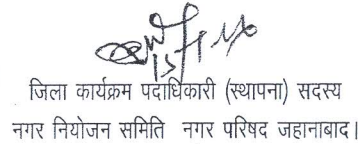 जिला कार्यक्रम पदाधिकारी (स्थापना) सदस्य
नगर नियोजन समिति नगर परिषद जहानाबाद।